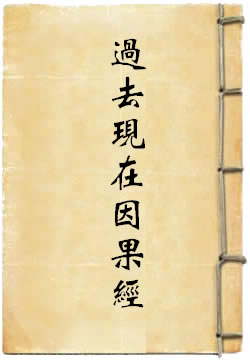 過去現在因果經